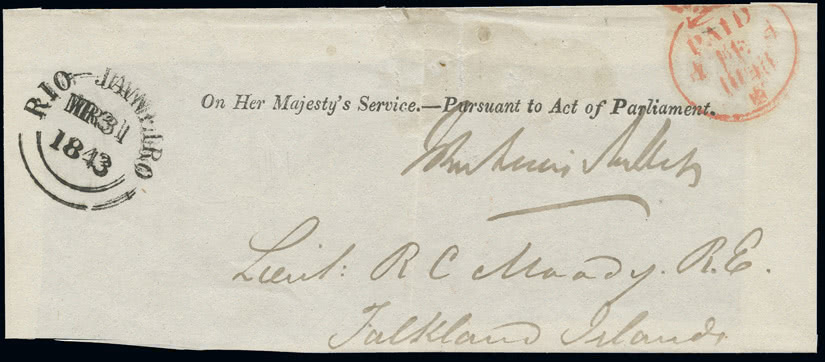 PAID
4 FE 4
1843
RIO-JANNEIRO
MR31
1843
On Her Majesty's Service.—Pursuant to Act of Parliament.
Lieut: R C Moody. R.E.
Falkland Islands